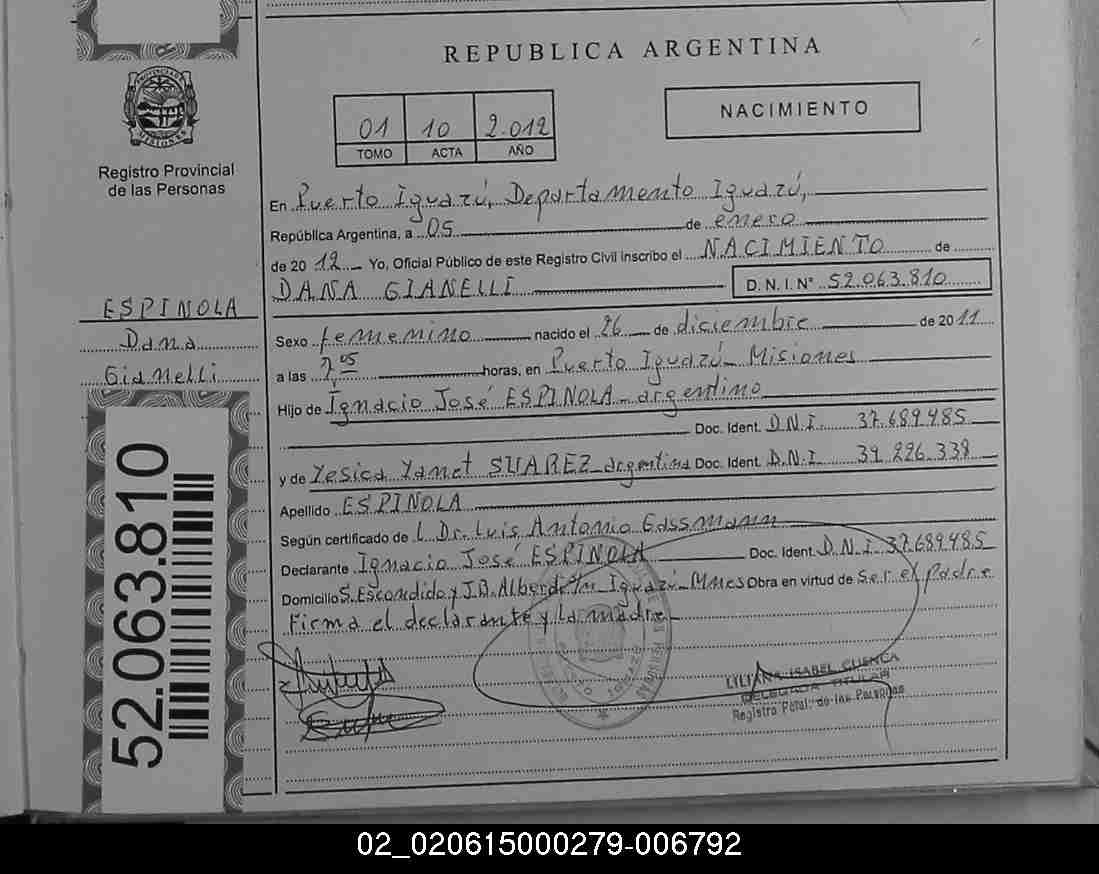 REPUBLICA ARGENTINA
01 10 2.012
TOMO ACTA AÑO
NACIMIENTO
MISIONES
Registro Provincial
de las Personas
ESPINOLA
Dana
Gianelli
52.063.810
En Puerto Iguazú, Departamento Iguazú,
República Argentina, a 05 de enero
de 20 12 Yo, Oficial Público de este Registro Civil inscribo el NACIMIENTO de
DANA GIANELLI D.N.I.N° 52.063.810
Sexo femenino nacido el 26 de diciembre de 2011
a las 7,05 horas, en Puerto Iguazú - Misiones
Hijo de Ignacio José ESPINOLA - argentino
Doc. Ident. D.N.I. 37.689.485
y de Yesica Yanet SUAREZ - argentina Doc. Ident. D.N.I. 39.226.338
Apellido ESPINOLA
Según certificado de Dr. Luis Antonio Gassmann
Declarante Ignacio José ESPINOLA Doc. Ident. D.N.I. 37.689.485
Domicilio S. Escondido y J.B. Alberdi Iguazú - Mnes Obra en virtud de Ser el padre
Firma el declarante y la madre
LILIANA ISABEL CUENCA
DELEGADA TITULAR
Registro Pcial. de las Personas
02_020615000279-006792